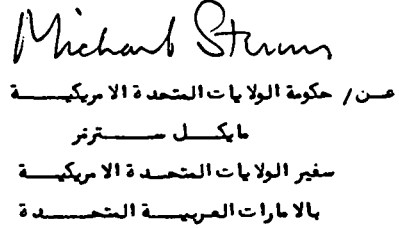 Michael Sterner
عـن/ حكومة الولايات المتحدة الامريكيـــة
مايكـل ســـترنر
سفير الولايات المتحـــدة الامريكيـــة
بالامارات العربيـــة المتحـــدة